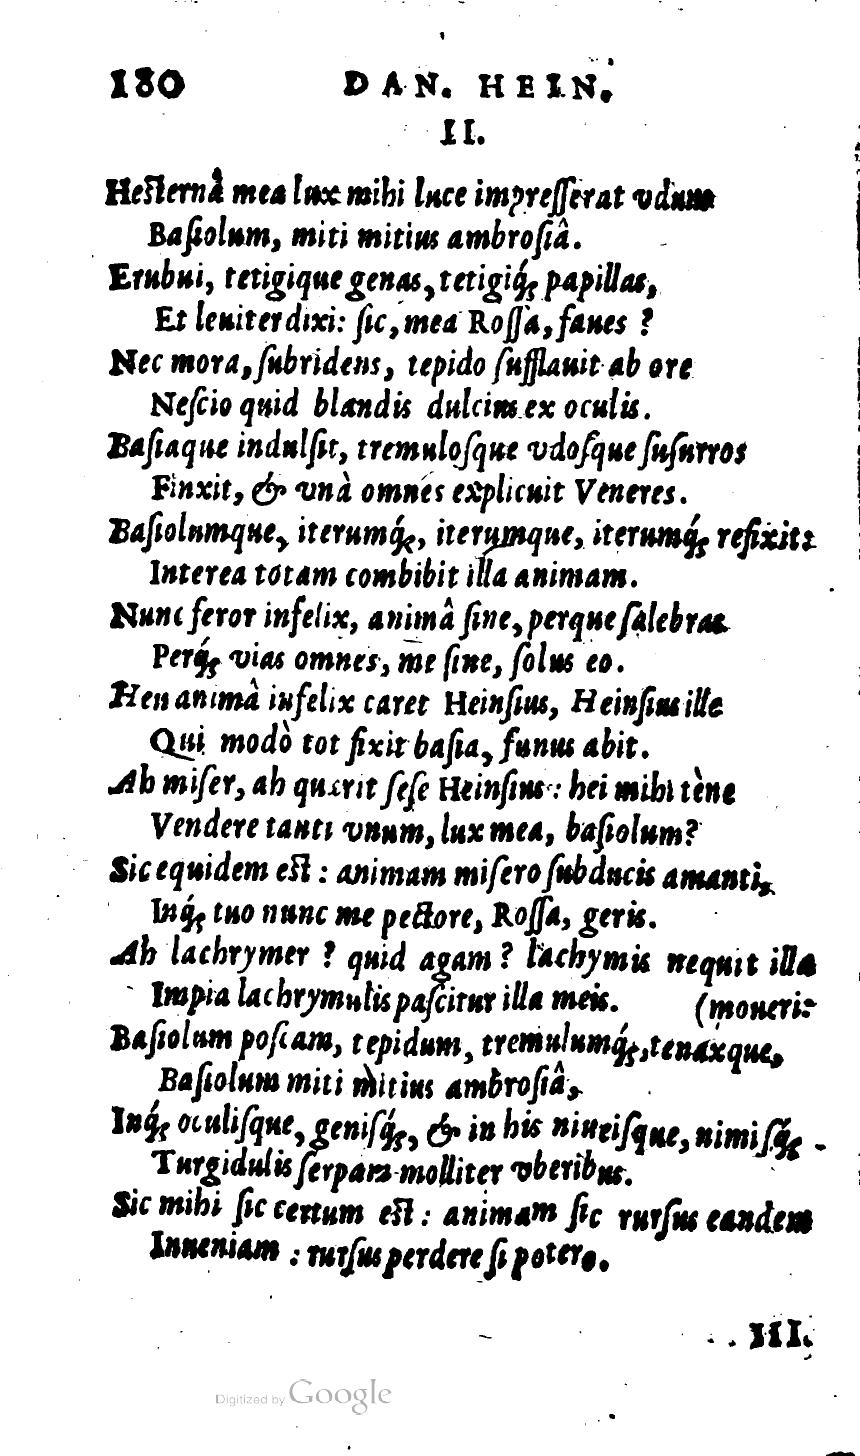 180 DAN. HEIN.
II.
Hesternâ mea lux mihi luce impresserat vdum
Basiolum, miti mitius ambrosiâ.
Erubui, tetigique genas, tetigiq́; papillas,
Et leuiter dixi: sic, mea Rossa, faues ?
Nec mora, subridens, tepido sufflauit ab ore
Nescio quid blandis dulcius ex oculis.
Basiaque indulsit, tremulosque vdosque susurros
Finxit, & vnà omnes explicuit Veneres.
Basiolumque, iterumq́;, iterumque, iterumq́; refixit:
Interea totam combibit illa animam.
Nunc feror infelix, animâ sine, perque salebras
Perq́; vias omnes, me sine, solus eo.
Heu animâ infelix caret Heinsius, Heinsius ille
Qui modò tot fixit basia, funus abit.
Ah miser, ah quærit sese Heinsius: hei mihi tène
Vendere tanti vnum, lux mea, basiolum?
Sic equidem est : animam misero subducis amanti,
Inq́; tuo nunc me pectore, Rossa, geris.
Ah lachrymer ? quid agam ? lachymis nequit illa
Impia lachrymulis pascitur illa meis. (moueri:
Basiolum poscam, tepidum, tremulumq́;, tenaxque,
Basiolum miti mitius ambrosiâ,
Inq́; oculisque, genisq́;, & in his niueisque, nimisq́;
Turgidulis serpam molliter vberibus.
Sic mihi sic certum est : animam sic rursus eandem
Inueniam : rursus perdere si potero.
III.
Digitized by Google